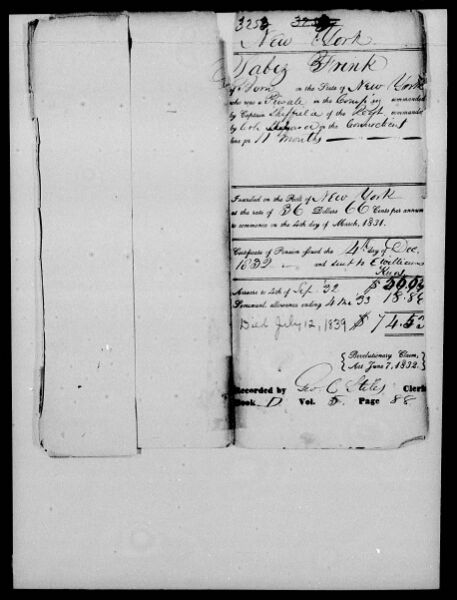 3253 3253
New York
Jabez Frink
of Rom in the State of New York
who was a Private in the Company commanded
by Captain of the Regt commanded
by Col. in the Connecticut
line for 11 months
Inscribed on the Roll of New York
at the rate of 36 Dollars 66 Cents per annum
to commence on the 4th day of March, 1831.
Certificate of Pension issued the 4th day of Dec.
1832 and sent to E Williams
Arrears to 4th of Sep. 32 $
Semi-anl. allowance ending 4 Mar 33 18.
Died July 12, 1839 $
{Revolutionary Claim,
Act June 7, 1832.}
Recorded by Geo. C. Stiles Clerk
Book D Vol. 5 Page 88